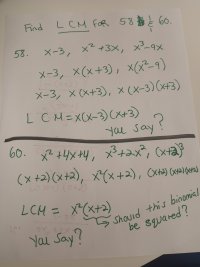 Find LCM For 58 & 60.
58. x-3, x²+3x, x³-9x
x-3, x(x+3), x(x²-9)
x-3, x(x+3), x(x-3)(x+3)
LCM=x(x-3)(x+3)
you say?
60. x²+4x+4, x³+2x², (x+2)³
(x+2)(x+2), x²(x+2), (x+2)(x+2)(x+2)
LCM= x²(x+2)
should this binomial
be squared?
You say?